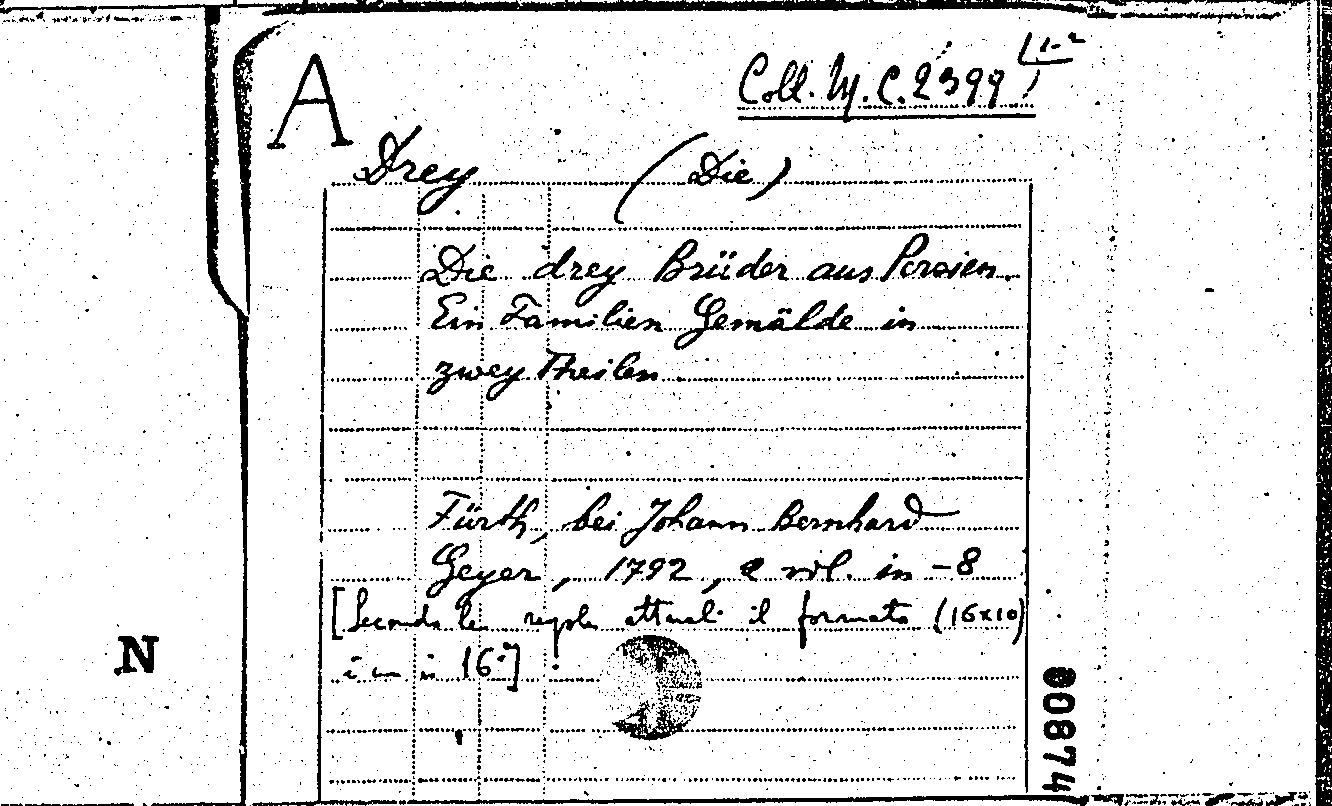 A
Coll. M. C. 2399 / 1-2
Drey (Die)
Die drey Brüder aus Persien.
Ein Familien Gemälde in
zwey Theilen.
Fürth, bei Johann Bernhard
Geyer, 1792, 2 vol. in -8
[Secondo le regole attuali il formato (16x10)
è un in 16°]
N
00874